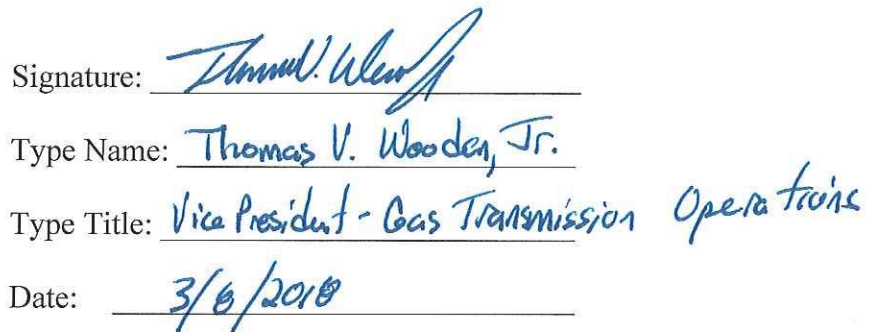 Signature:
Type Name: Thomas V. Wooden, Jr.
Type Title: Vice President - Gas Transmission Operations
Date: 3/8/2018